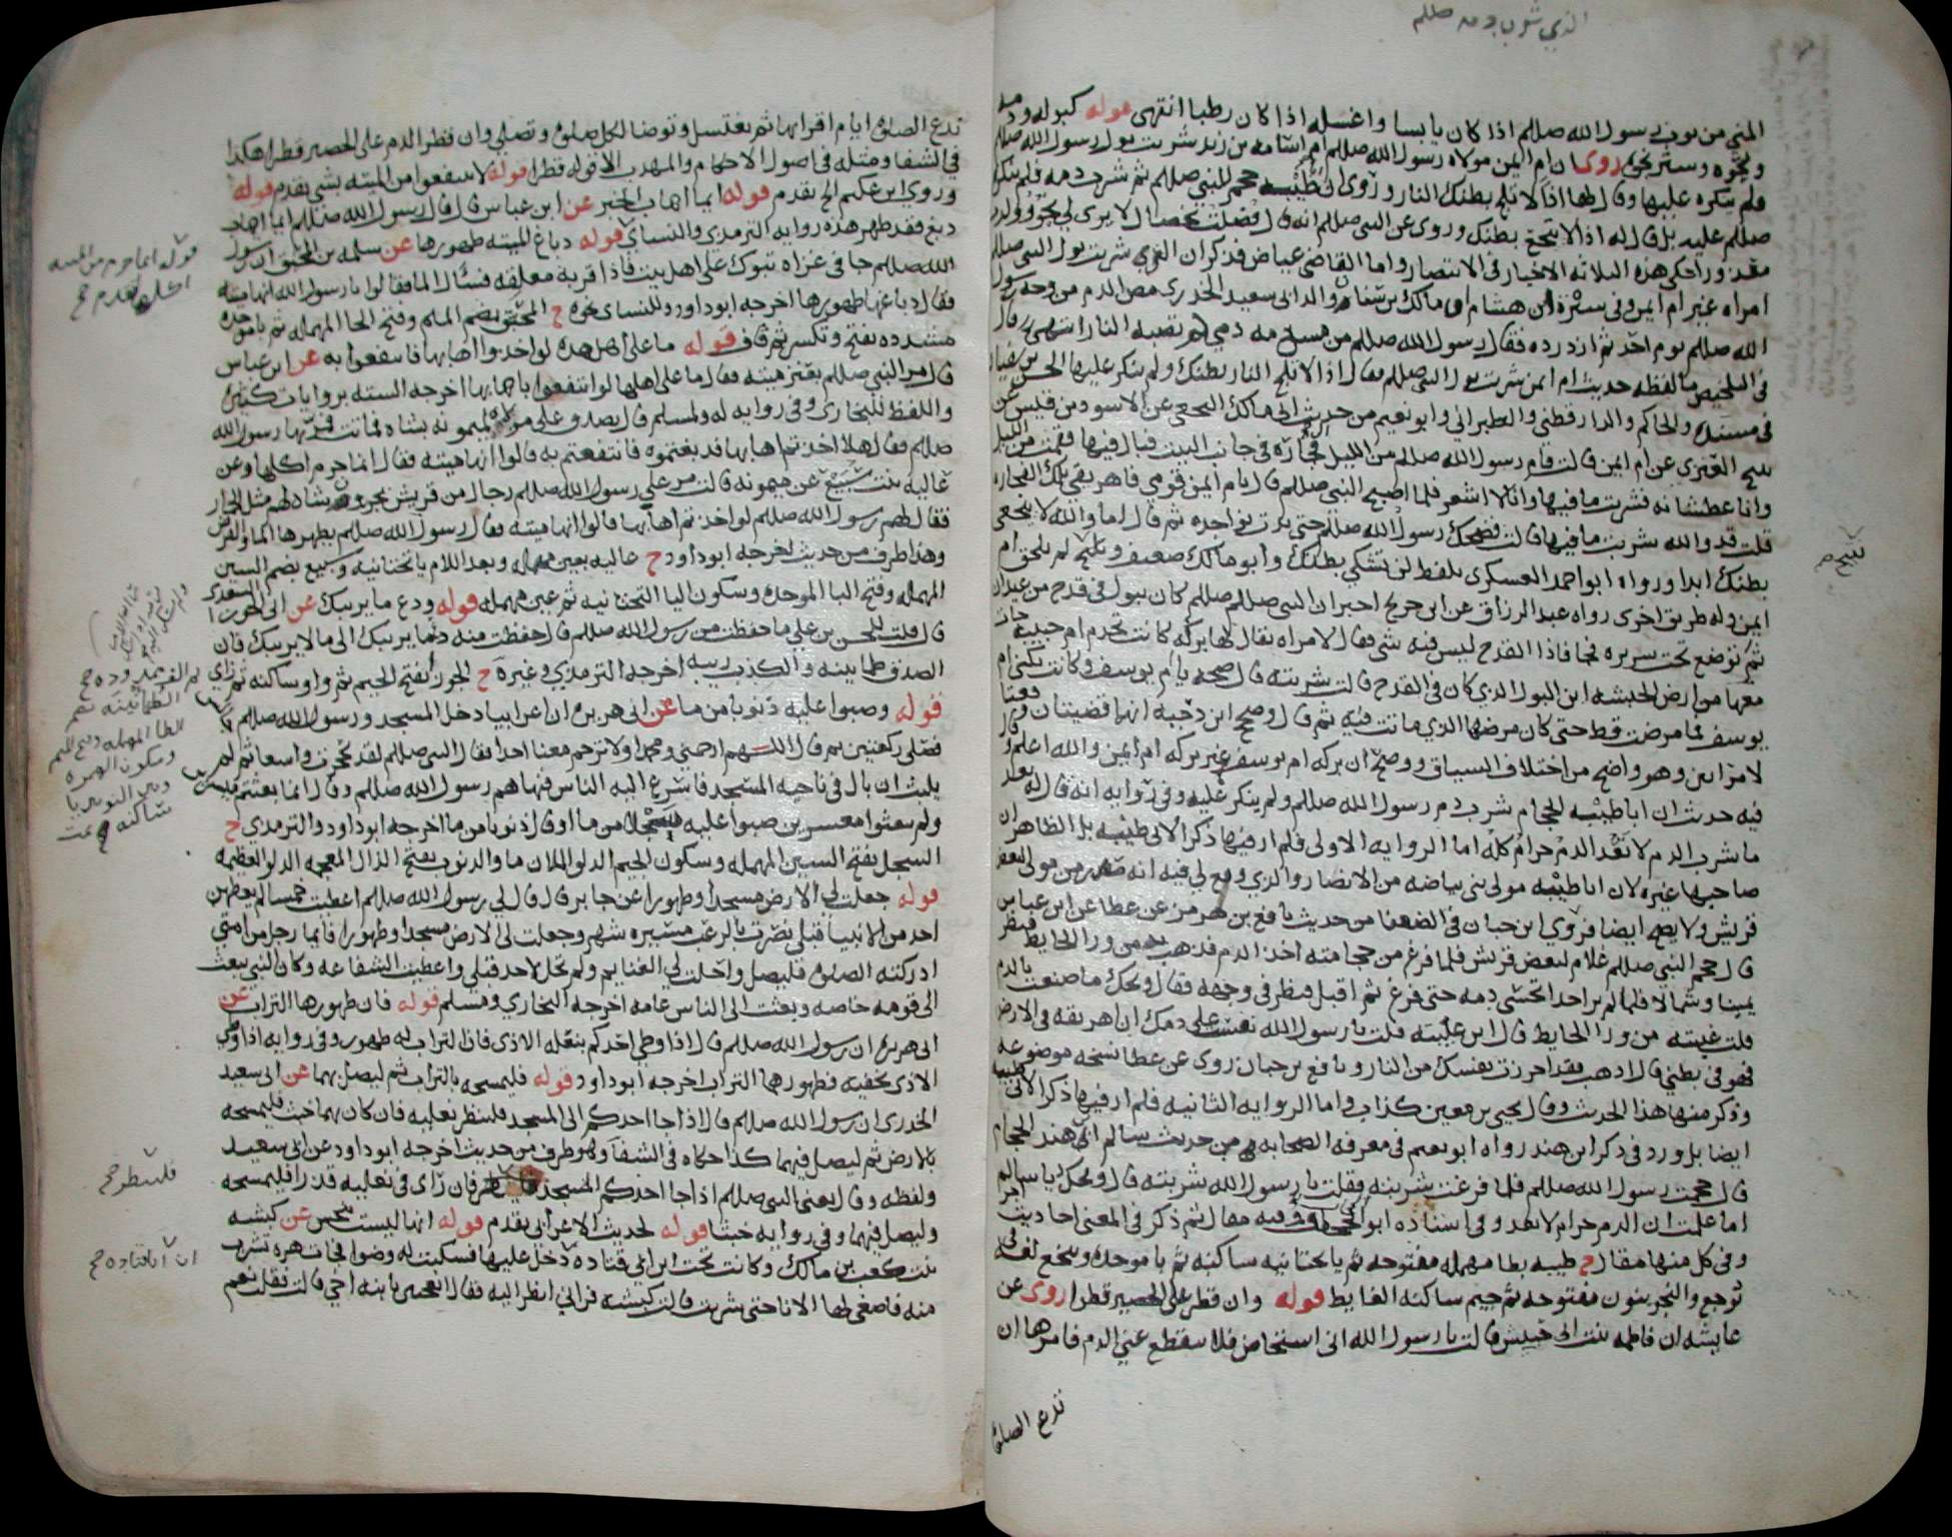 الذي شرب دمه صللم
المني من ثوب رسول الله صللم اذا كان يابسا واغسله اذا كان رطبا انتهى قوله كبوله ودمه
ونجوه وستر نجوه روى ان ام ايمن مولاه رسول الله صللم ام اسامه بن زيد شربت بول رسول الله صللم
فلم ينكره عليها وقال لها اذا لا تلج بطنك النار وروى ان ابا طيبه حجم النبي صللم ثم شرب دمه فلم ينكر
صللم عليه بل قال له اذا لا يتجع بطنك وروى عن النبي صللم انه قال فضلت بخصال لا يرى لي نجو ولا
حكى هذه الثلاثه الاخبار في الانتصار واما القاضي عياض فذكر ان التي شربت بول النبي صللم
امراه غير ام ايمن وفي سيرة ابن هشام ان مالك بن سنان والد ابي سعيد الخدري مص الدم من وجه رسول
الله صللم يوم احد ثم ازدرده فقال رسول الله صللم من مس دمه دمي لم تصبه النار انتهى وقال
في التلخيص ما لفظه حديث ام ايمن شربت بول النبي صللم فقال اذا لا تلج النار بطنك ولم ينكر عليها الحسن بن سفيان
في مسنده والحاكم والدارقطني والطبراني وابو نعيم من حديث ابي مالك النخعي عن الاسود بن قيس عن
نبيح العنزي عن ام ايمن قالت قام رسول الله صللم من الليل الى فخارة في جانب البيت فبال فيها فقمت من الليل
وانا عطشانه فشربت ما فيها وانا لا اشعر فلما اصبح النبي صللم قال يا ام ايمن قومي فاهريقي تلك الفخاره
قلت قد والله شربت ما فيها قالت فضحك رسول الله صللم حتى بدت نواجذه ثم قال اما والله لا يتجعن
بطنك ابدا ورواه ابو احمد العسكري بلفظ لن تشتكي بطنك وابو مالك ضعيف ونبيح لم يلحق ام
ايمن وله طريق اخرى رواه عبد الرزاق عن ابن جريج اخبرت ان النبي صللم كان يبول في قدح من عيدان
ثم يوضع تحت سريره فجا فاذا القدح ليس فيه شي فقال لامراه يقال لها بركه كانت تخدم ام حبيبه جات
معها من ارض الحبشه اين البول الذي كان في القدح قالت شربته قال صحه يا ام يوسف وكانت تكنى ام
يوسف فما مرضت قط حتى كان مرضها الذي ماتت فيه ثم قال وصحح ابن دحيه انهما قضيتان وقعتا
لامراتين وهو واضح من اختلاف السياق ووضح ان بركه ام يوسف غير بركه ام ايمن والله اعلم وقال
فيه حديث ان ابا طيبه الحجام شرب دم رسول الله صللم ولم ينكر عليه وفي روايه انه قال له بعد
ما شرب الدم لا تعد الدم حرام كله اما الروايه الاولى فلم ار فيها ذكرا لابي طيبه بل الظاهر ان
صاحبها غيره لان ابا طيبه مولى بني بياضه من الانصار والذي وقع لي فيه انه صدر من مولى لبعض
قريش ولا يصح ايضا فروى ابن حبان في الضعفا من حديث نافع بن هرمز عن عطا عن ابن عباس
قال حجم النبي صللم غلام لبعض قريش فلما فرغ من حجامته اخذ الدم فذهب به من ورا الحايط فنظر
يمينا وشمالا فلما لم ير احدا تحسى دمه حتى فرغ ثم اقبل فنظر في وجهه فقال ويحك ما صنعت بالدم
قلت غيبته من ورا الحايط قال اين غيبته قلت يا رسول الله نفست على دمك ان اهريقه في الارض
فهو في بطني قال اذهب فقد احرزت نفسك من النار ونافع بن حبان روى عن عطا نسخه موضوعه
وذكر منها هذا الحديث وقال يحيى بن معين كذاب واما الروايه الثانيه فلم ار فيها ذكرا لابي طيبه
ايضا بل ورد في ذكر ابي هند رواه ابو نعيم في معرفه الصحابه من حديث سالم ابي هند الحجام
قال حجمت رسول الله صللم فلما فرغت شربته فقلت يا رسول الله شربته قال ويحك يا سالم
اما علمت ان الدم حرام لا تعد وفي اسناده ابو الحجاف وفيه مقال ثم ذكر في المعنى احاديث اخر
وفي كل منها مقال ح طيبه بطا مهمله مفتوحه ثم يا تحتانيه ساكنه ثم با موحده ويتجع لغه في
توجع والنجو بنون مفتوحه ثم جيم ساكنه الغايط قوله وان قطر على الحصير قطرا روى عن
عايشه ان فاطمه بنت ابي حبيش قالت يا رسول الله اني استحاض فلا ينقطع عني الدم فامرها ان
تدع الصلوة
نبيح م
تدع الصلوة ايام اقرايها ثم تغتسل وتوضا لكل صلوة وتصلي وان قطر الدم على الحصير قطرا هكذا
في الشفا ومثله في اصول الاحكام والمهذب الا قوله قطرا قوله لا تنتفعوا من الميته بشي تقدم قوله
وروى ابن عكيم الخ تقدم قوله ايما اهاب الخبر عن ابن عباس قال قال رسول الله صللم ايما اهاب
دبغ فقد طهر هذه روايه الترمذي والنساي قوله دباغ الميته طهورها عن سلمه بن المحبق ان رسول
الله صللم جا في غزاه تبوك على اهل بيت فاذا قربة معلقه فسال الما فقالوا يا رسول الله انها ميته
فقال دباغها طهورها اخرجه ابو داود وللنساي نحوه ح المحبق بضم الميم وفتح الحا المهمله ثم با موحده
مشدده تفتح وتكسر ثم قاف قوله ما على اهل هذه لو اخذوا اهابها فانتفعوا به عن ابن عباس
قال مر النبي صللم بعنز ميته فقال ما على اهلها لو انتفعوا باهابها اخرجه السته بروايات كثيره
واللفظ للبخاري وفي روايه له ولمسلم قال تصدق على مولاة لميمونه بشاه فماتت فمر بها رسول الله
صللم فقال هلا اخذتم اهابها فدبغتموه فانتفعتم به قالوا انها ميته فقال انما حرم اكلها وعن
عاليه بنت سبيع عن ميمونه قالت مر على رسول الله صللم رجال من قريش يجرون شاه لهم مثل الحمار
فقال لهم رسول الله صللم لو اخذتم اهابها قالوا انها ميته فقال رسول الله صللم يطهرها الما والقرض
وهذا طرف من حديث اخرجه ابو داود ح عاليه بعين مهمله وبعد اللام يا تحتانيه وسبيع بضم السين
المهمله وفتح البا الموحده وسكون اليا التحتانيه ثم عين مهمله قوله ودع ما يريبك عن ابي الحورا السعدي
قال قلت للحسن بن علي ما حفظت من رسول الله صللم قال حفظت منه دع ما يريبك الى ما لا يريبك فان
الصدق طمانينه والكذب ريبه اخرجه الترمذي وغيره ح الجوز بفتح الجيم ثم واو ساكنه ثم زاي
قوله وصبوا عليه ذنوبا من ما عن ابي هريرة ان اعرابيا دخل المسجد ورسول الله صللم
فصلى ركعتين ثم قال اللهم ارحمني ومحمدا ولا ترحم معنا احدا فقال النبي صللم لقد تحجرت واسعا ثم لم
يلبث ان بال في ناحيه المسجد فاسرع اليه الناس فنهاهم رسول الله صللم وقال انما بعثتم ميسرين
ولم تبعثوا معسرين صبوا عليه سجلا من ما او قال ذنوبا من ما اخرجه ابو داود والترمذي ح
السجل بفتح السين المهمله وسكون الجيم الدلو الملان ما والذنوب بفتح الذال المعجمه الدلو العظيمه
قوله جعلت لي الارض مسجدا وطهورا عن جابر قال قال لي رسول الله صللم اعطيت خمسا لم يعطهن
احد من الانبيا قبلي نصرت بالرعب مسيره شهر وجعلت لي الارض مسجدا وطهورا فايما رجل من امتي
ادركته الصلوة فليصل واحلت لي الغنايم ولم تحل لاحد قبلي واعطيت الشفاعه وكان النبي يبعث
الى قومه خاصه وبعثت الى الناس عامه اخرجه البخاري ومسلم قوله فان طهورها التراب عن
ابي هريرة ان رسول الله صللم قال اذا وطي احدكم بنعله الاذى فان التراب له طهور وفي روايه اذا وطي
الاذى بخفيه فطهورهما التراب اخرجه ابو داود قوله فليمسحه بالتراب ثم ليصل بهما عن ابي سعيد
الخدري ان رسول الله صللم قال اذا جا احدكم الى المسجد فلينظر نعليه فان كان بهما خبث فليمسحه
بالارض ثم ليصل فيهما كذا حكاه في الشفا وهو طرف من حديث اخرجه ابو داود عن ابي سعيد
ولفظه وقال يعني النبي صللم اذا جا احدكم المسجد فلينظر فان راى في نعليه قذرا فليمسحه
وليصل فيهما وفي روايه خبثا قوله لحديث الاعرابي تقدم قوله انها ليست بنجس عن كبشه
بنت كعب بن مالك وكانت تحت ابن ابي قتاده دخل عليها فسكبت له وضوا فجات هره تشرب
منه فاصغى لها الانا حتى شربت قالت كبشه فراني انظر اليه فقال اتعجبين يا ابنه اخي قالت فقلت نعم
قوله انما حرم من الميته
اكلها تقدم ح
الطمانينه بضم
الطا المهمله وفتح الميم
وسكون الهمزه
وبين النونين يا
ساكنه تمت
فلينظر ح
ان ابا قتاده ح